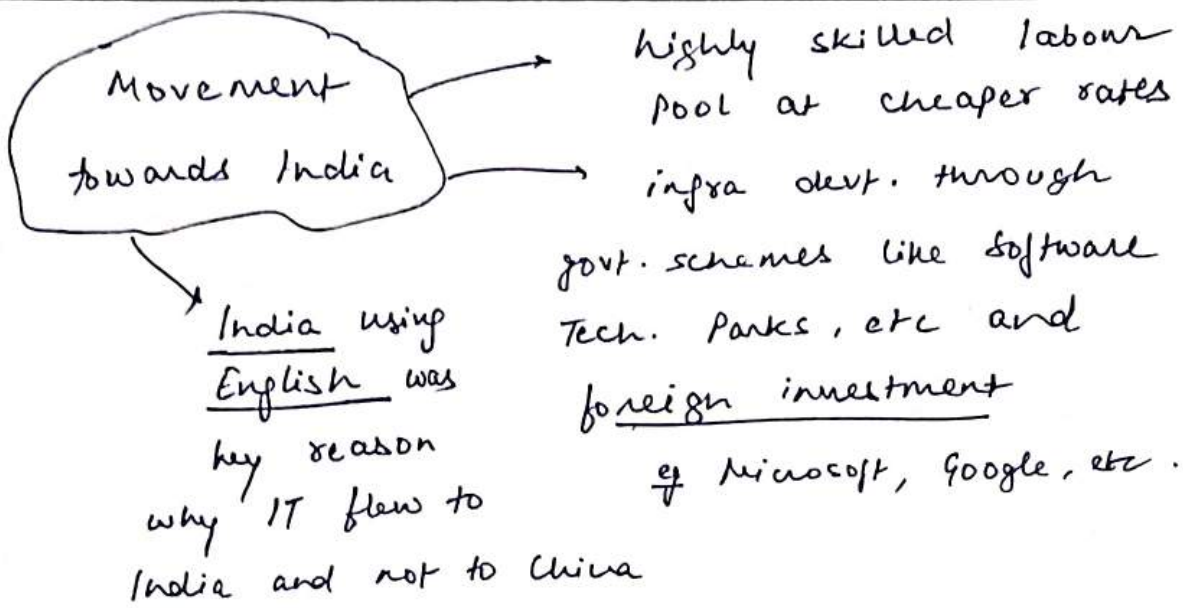 Movement
towards India
highly skilled labour
pool at cheaper rates
infra devt. through
govt. schemes like Software
Tech. Parks, etc and
foreign investment
eg Microsoft, Google, etc.
India using
English was
key reason
why IT flew to
India and not to China